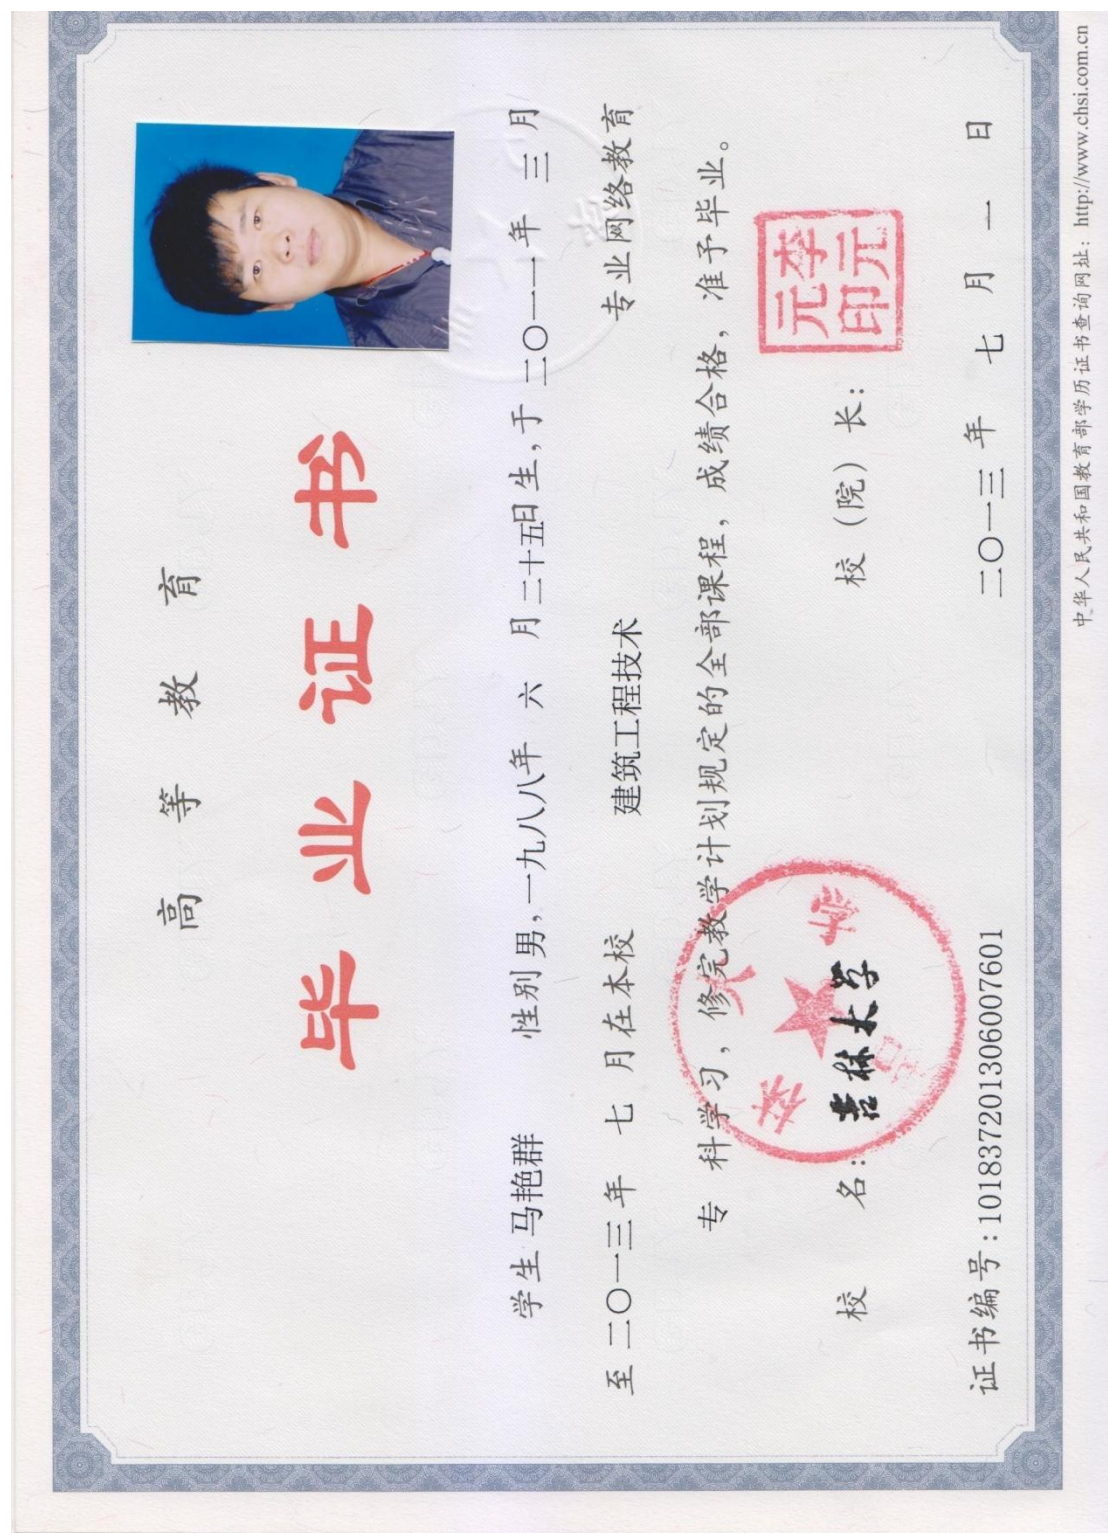 高等教育
毕业证书
学生 马艳群 性别 男，一九八八年 六 月 二十五日生，于 二〇一一年 三 月
至 二〇一三年 七 月在本校 建筑工程技术 专业网络教育
专 科学习，修完教学计划规定的全部课程，成绩合格，准予毕业。
校 名：吉林大学 校（院）长：
李元元印
证书编号：101837201306007601 二〇一三年 七 月 一 日
中华人民共和国教育部学历证书查询网址：http://www.chsi.com.cn